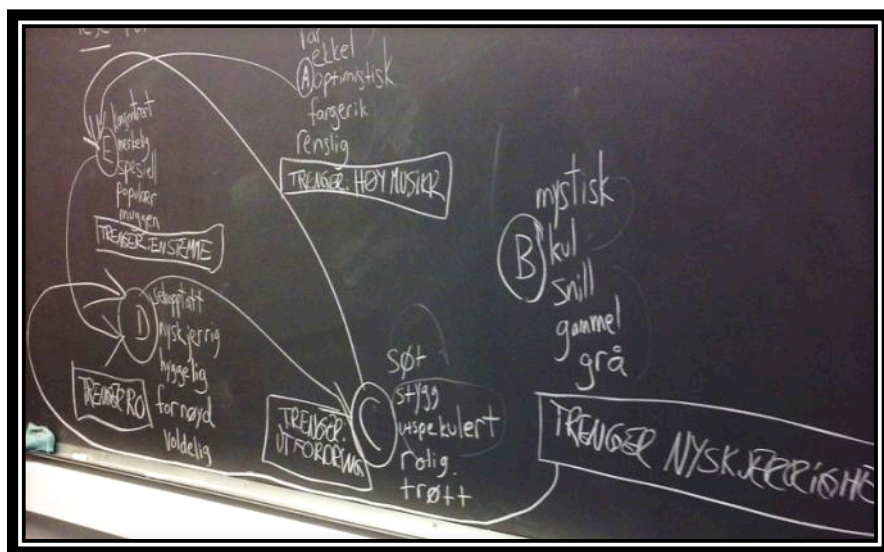 ekkel
A optimistisk
fargerik
renslig
TRENGER. HØY MUSIKK
E
merkelig
spesiell
populær
muggen
TRENGER. EN STEMME
D
selvopptatt
nyskjerrig
hyggelig
fornøyd
voldelig
TRENGER RO
C
søt
stygg
utspekulert
rolig.
trøtt
TRENGER.
UTFORDRING
B
mystisk
kul
snill
gammel
grå
TRENGER NYSKJERRIGHE